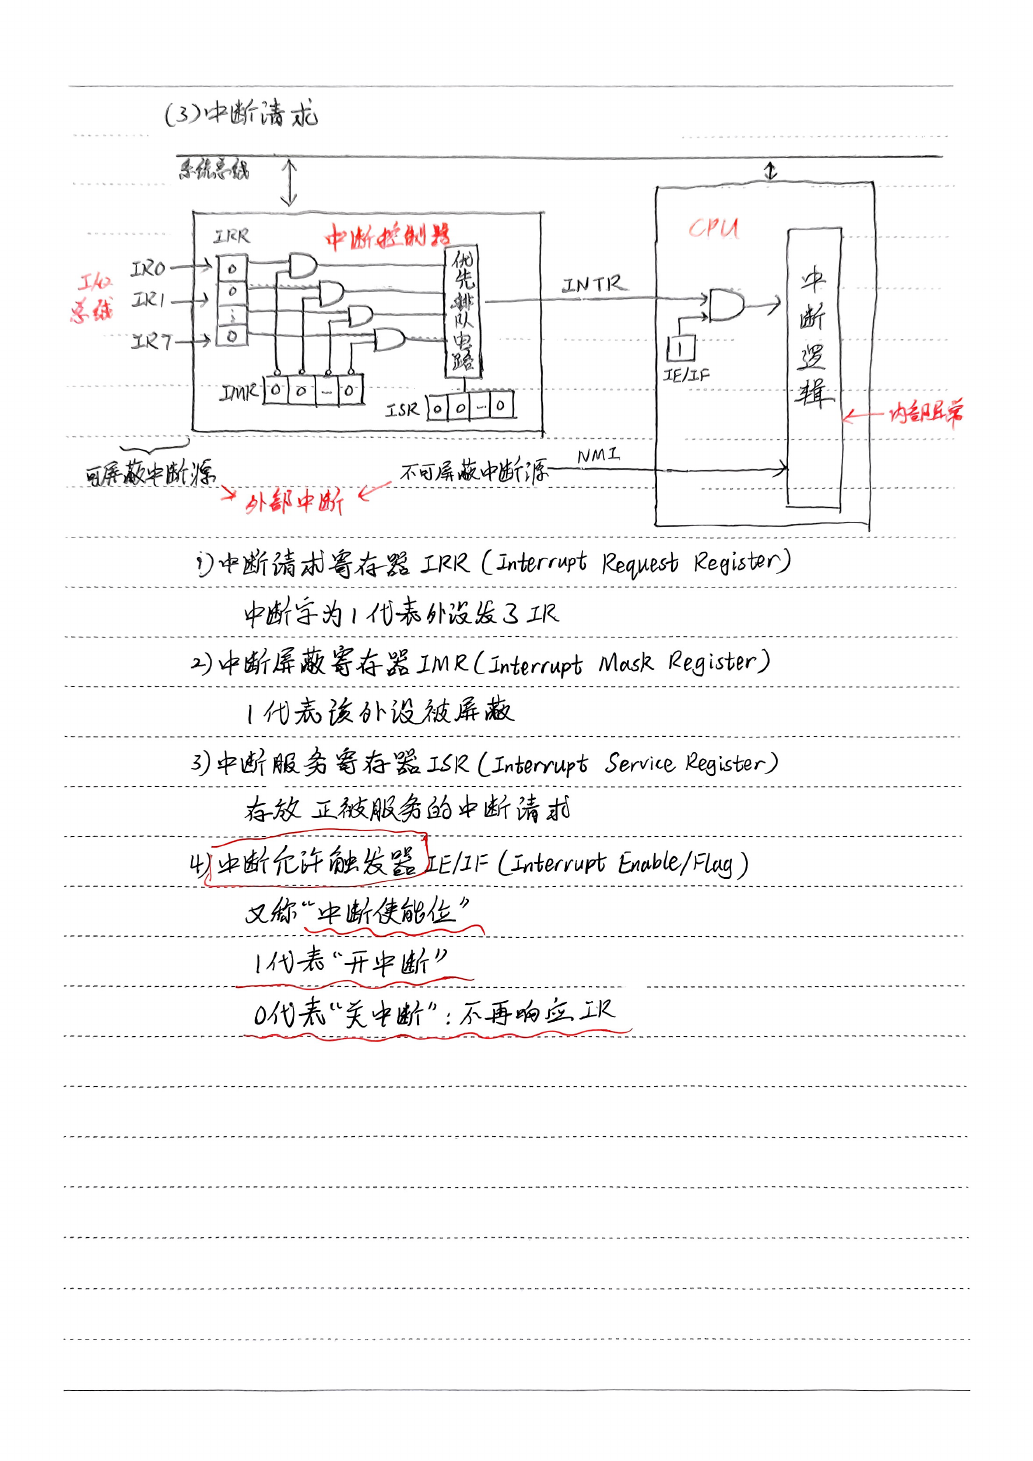 (3)中断请求
系统总线
IRR
中断控制器
CPU
I/O
总线
IR0
0
IR1
0
⋮
IR7
0
优先排队电路
INTR
1
IE/IF
中断逻辑
IMR 0 0 … 0
ISR 0 0 … 0
内部异常
可屏蔽中断源
不可屏蔽中断源
NMI
外部中断
1)中断请求寄存器 IRR (Interrupt Request Register)
中断字为1代表外设发了IR
2)中断屏蔽寄存器 IMR (Interrupt Mask Register)
1代表该外设被屏蔽
3)中断服务寄存器 ISR (Interrupt Service Register)
存放正被服务的中断请求
4)中断允许触发器 IE/IF (Interrupt Enable/Flag)
又称“中断使能位”
1代表“开中断”
0代表“关中断”：不再响应IR